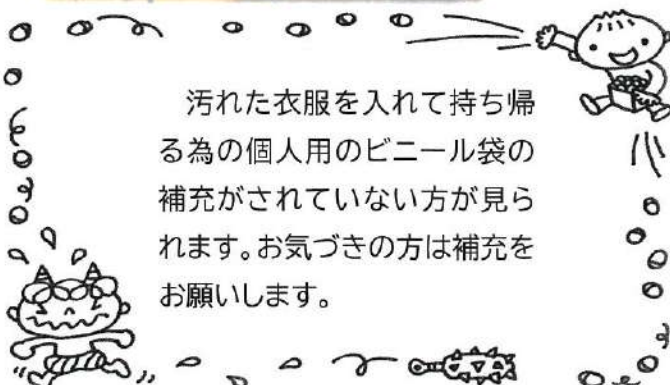 汚れた衣服を入れて持ち帰
る為の個人用のビニール袋の
補充がされていない方が見ら
れます。お気づきの方は補充を
お願いします。